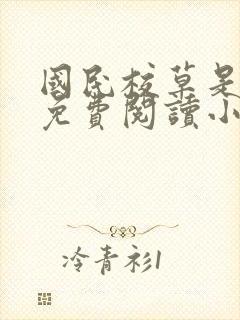 國民校草是
免費閱讀小
冷青衫1